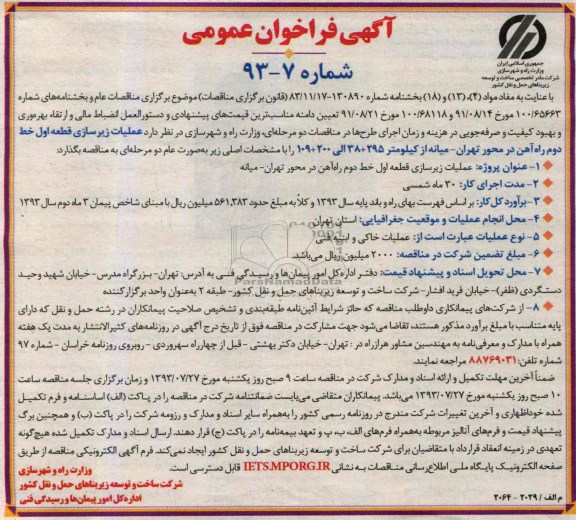 آگهی فراخوان عمومی
شماره ۷-۹۳
جمهوری اسلامی ایران
وزارت راه و شهرسازی
شرکت مادر تخصصی ساخت و توسعه
زیربناهای حمل و نقل کشور
با عنایت به مفاد مواد (۴)، (۱۳) و (۱۸) بخشنامه شماره ۱۳۰۸۹۰-۸۳/۱۱/۱۷ (قانون برگزاری مناقصات) موضوع برگزاری مناقصات عام و بخشنامه‌های شماره
۱۰۰/۶۵۶۶۳ مورخ ۹۱/۰۸/۱۴ و ۱۰۰/۶۸۱۱۸ مورخ ۹۱/۰۸/۲۱ تعیین دامنه مناسب‌ترین قیمت‌های پیشنهادی و دستورالعمل انضباط مالی و ارتقاء بهره‌وری
و بهبود کیفیت و صرفه‌جویی در هزینه و زمان اجرای طرح‌ها در مناقصات دو مرحله‌ای، وزارت راه و شهرسازی در نظر دارد عملیات زیرسازی قطعه اول خط
دوم راه‌آهن در محور تهران- میانه از کیلومتر ۲۹۵+۳۸ الی ۲۰۰+۱۰۹ را با مشخصات اصلی زیر به‌صورت عام دو مرحله‌ای به مناقصه بگذارد:
۱- عنوان پروژه: عملیات زیرسازی قطعه اول خط دوم راه‌آهن در محور تهران- میانه
۲- مدت اجرای کار: ۳۰ ماه شمسی
۳- برآورد کل کار: بر اساس فهرست بهای راه و باند پایه سال ۱۳۹۳ و کلاً به مبلغ حدود ۵۶۱,۳۸۳ میلیون ریال با مبنای شاخص پیمان ۳ ماه دوم سال ۱۳۹۳
۴- محل انجام عملیات و موقعیت جغرافیایی: استان تهران
۵- نوع عملیات عبارت است از: عملیات خاکی و ابنیه فنی
۶- مبلغ تضمین شرکت در مناقصه: ۲۰۰۰ میلیون ریال می‌باشد.
۷- محل تحویل اسناد و پیشنهاد قیمت: دفتر اداره کل امور پیمان‌ها و رسیدگی فنی به آدرس: تهران- بزرگراه مدرس- خیابان شهید وحید
دستگردی (ظفر)- خیابان فرید افشار- شرکت ساخت و توسعه زیربناهای حمل و نقل کشور- طبقه ۲ به‌عنوان واحد برگزارکننده
۸- از شرکت‌های پیمانکاری داوطلب مناقصه که حائز شرایط آئین‌نامه طبقه‌بندی و تشخیص صلاحیت پیمانکاران در رشته حمل و نقل که دارای
پایه متناسب با مبلغ برآورد مذکور هستند، تقاضا می‌شود جهت مشارکت در مناقصه فوق از تاریخ درج آگهی در روزنامه‌های کثیرالانتشار به مدت یک هفته
همراه با مدارک و معرفی‌نامه به مهندسین مشاور هزارراه در: تهران- خیابان دکتر بهشتی - قبل از چهارراه سهروردی - روبروی روزنامه خراسان - شماره ۹۷
شماره تلفن: ۸۸۷۶۹۰۳۱ مراجعه نمایند.
ضمناً آخرین مهلت تکمیل و ارائه اسناد و مدارک شرکت در مناقصه ساعت ۹ صبح روز یکشنبه مورخ ۱۳۹۳/۰۷/۲۷ و زمان برگزاری جلسه مناقصه ساعت
۱۰ صبح روز یکشنبه مورخ ۱۳۹۳/۰۷/۲۷ می‌باشد. پیمانکاران متقاضی می‌بایست ضمانتنامه شرکت در مناقصه را در پاکت (الف) اساسنامه و فرم تکمیل
شده خوداظهاری و آخرین تغییرات شرکت مندرج در روزنامه رسمی کشور را به‌همراه سایر اسناد و مدارک و رزومه شرکت را در پاکت (ب) و همچنین برگ
پیشنهاد قیمت و فرم‌های آنالیز مربوطه به‌همراه فرم‌های الف، ب، پ و تعهد بیمه‌نامه را در پاکت (ج) قرار دهند. ارسال اسناد و مدارک تکمیل شده هیچ‌گونه
تعهدی در زمینه انعقاد قرارداد با متقاضیان برای شرکت ساخت و توسعه زیربناهای حمل و نقل کشور ایجاد نمی‌کند. فرم آگهی الکترونیکی مناقصه از طریق
صفحه الکترونیک پایگاه ملی اطلاع‌رسانی مناقصات به نشانی IETS.MPORG.IR قابل دسترسی است.
وزارت راه و شهرسازی
شرکت ساخت و توسعه زیربناهای حمل و نقل کشور
اداره کل امور پیمان‌ها و رسیدگی فنی
م الف / ۲۰۲۹ - ۲۰۶۴
ParsNamadData